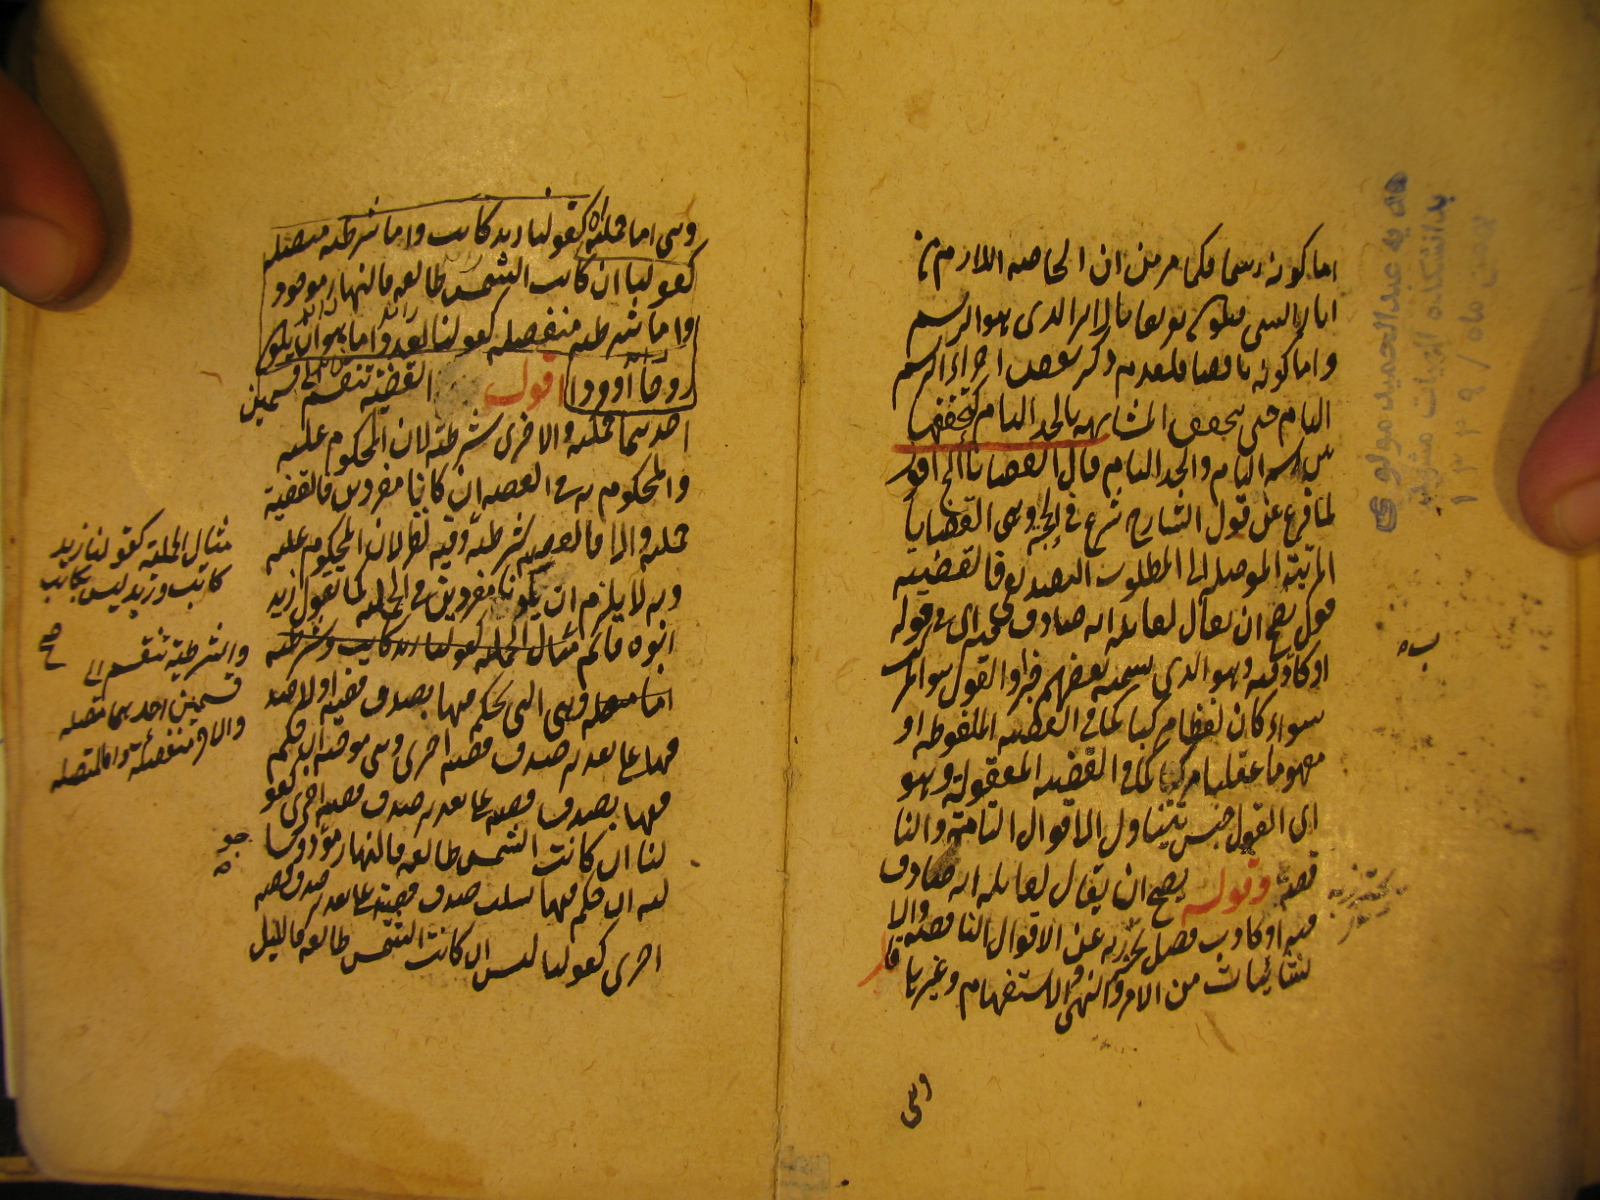 اما كونه رسما فلما مر من ان الخاصة اللازمة من
اثار الشى فيكون تعريفا بالاثر الذى هو الرسم
واما كونه ناقصا فلعدم ذكر بعض اجزاء الرسم
التام حتى يتحقق المشابهة بالحد التام كتحققها
بين الرسم التام والحد التام قال القضايا الخ اقول
لما فرغ عن قول الشارح شرع فى الحجة وهى القضايا
المرتبة الموصلة الى المطلوب التصديقى فالقضية
قول يصح ان يقال لقائله انه صادق فيه اى فى قوله
او كاذب فيه وهو الذي يسميه بعضهم خبرا والقول هو المركب
سواء كان لفظا مركبا كما فى القضية الملفوظة او
مفهوما عقليا مركبا كما فى القضية المعقولة وهو
اى القول جنس يتناول الاقوال التامة والنا
قصة وقوله يصح ان يقال لقائله انه صادق
فيه او كاذب فصل يحترز به عن الاقوال الناقصة والا
نشائيات من الامر والنهى والاستفهام وغيرها
وهى
هديه عبدالحميد مولوی
بدانشكده الهيات مشهد
بهمن ماه / ١٣٤٩
وهى اما حملية كقولنا زيد كاتب واما شرطية متصلة
كقولنا ان كانت الشمس طالعة فالنهار موجود
واما شرطية منفصلة كقولنا العدد اما ان يكون
زوجا او فردا اقول القضية تنقسم الى قسمين
احديهما حملية والاخرى شرطية لان المحكوم عليه
والمحكوم به فى القضية ان كانا مفردين فالقضية
حملية والا فالقضية شرطية وفيه نظر لان المحكوم عليه
وبه لا يلزم ان يكونا مفردين فى الحملية كما تقول زيد
ابوه قائم مثال الحملية كقولنا زيد كاتب وشرطية
اما متصلة وهى التى يحكم فيها بصدق قضية او لا صد
قها على تقدير صدق قضية اخرى وهى موجبة ان حكم
فيها بصدق قضية على تقدير صدق قضية اخرى كقو
لنا ان كانت الشمس طالعة فالنهار موجود وسا
لبة ان حكم فيها بسلب صدق قضية على تقدير صدق قضية
اخرى كقولنا ليس ان كانت الشمس طالعة فالليل
مثال الحملية كقولنا زيد
كاتب وزيد ليس بكاتب
والشرطية تنقسم الى
قسمين احديهما متصلة
والاخر منفصلة واما المتصلة